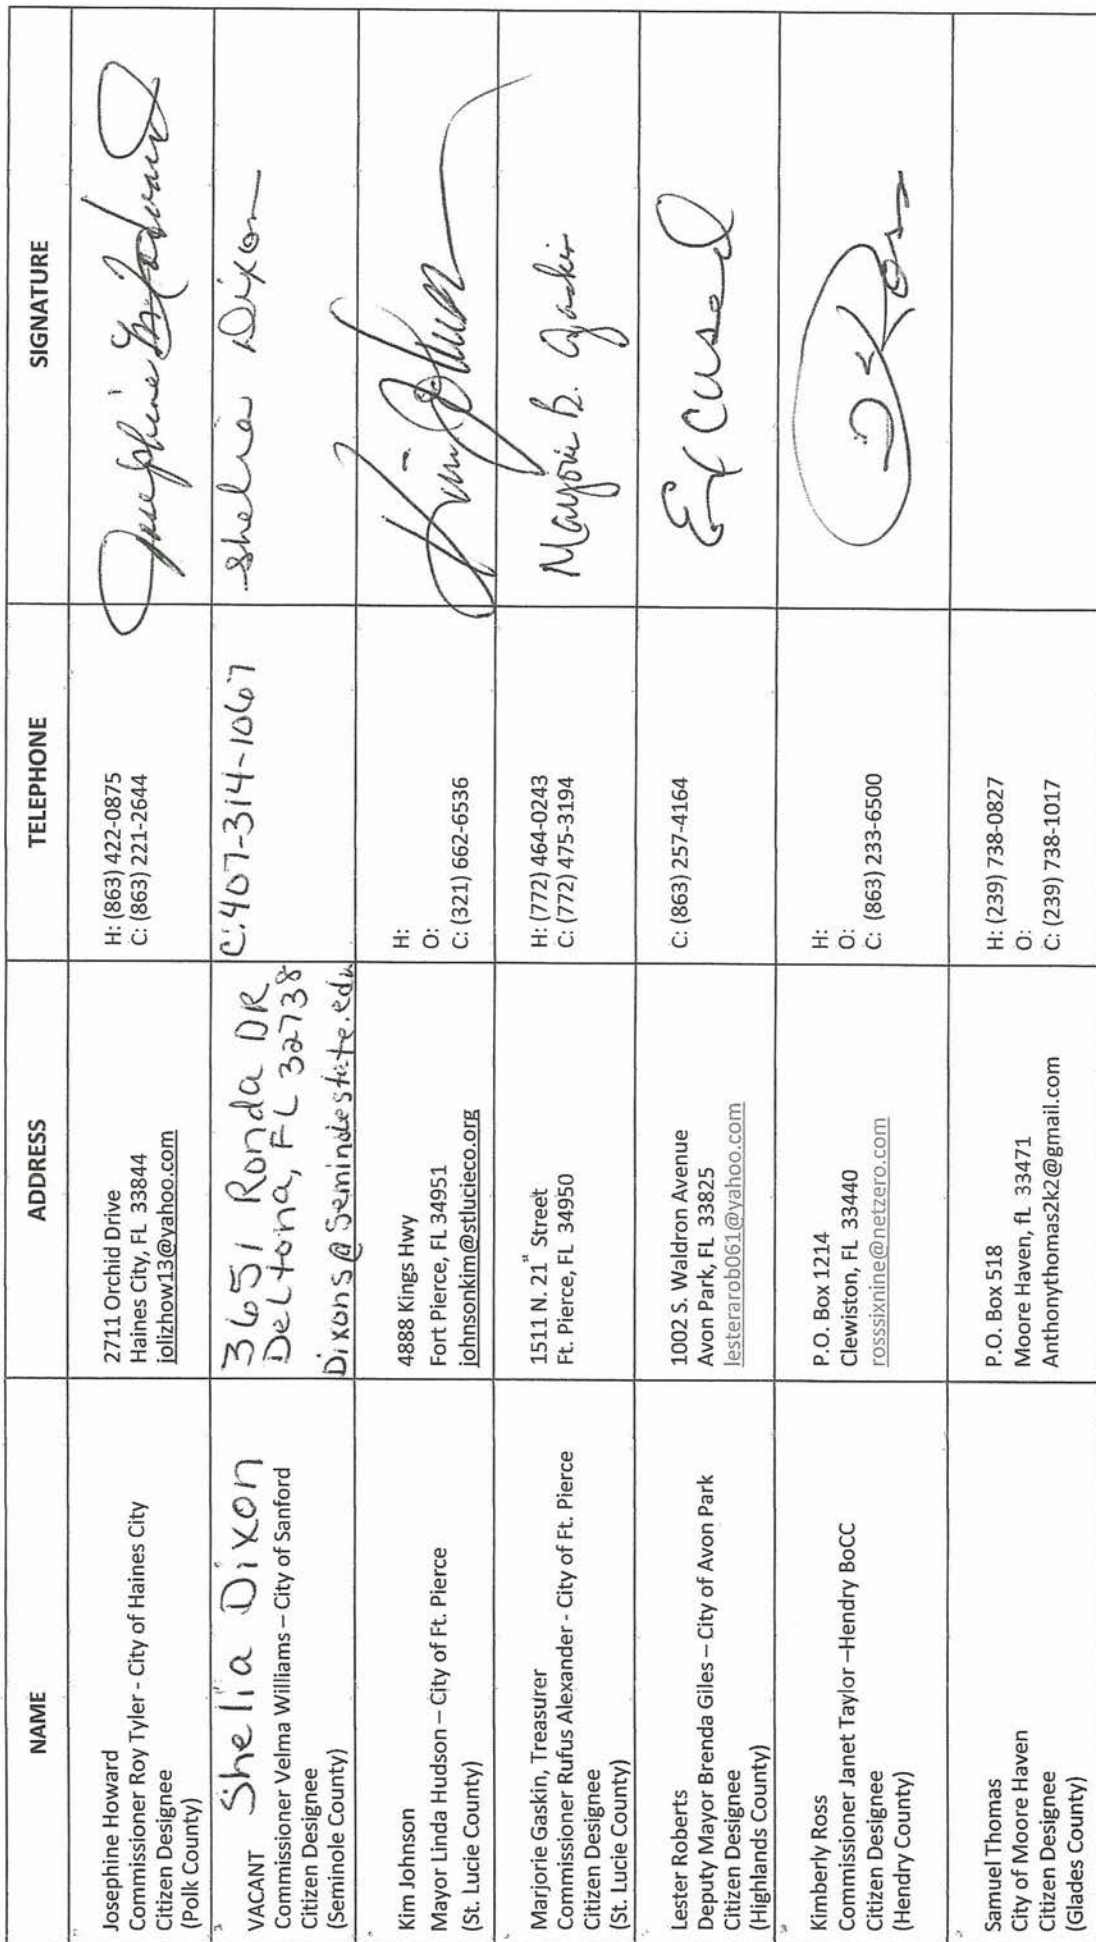 NAME
ADDRESS
TELEPHONE
SIGNATURE
Josephine Howard
Commissioner Roy Tyler - City of Haines City
Citizen Designee
(Polk County)
2711 Orchid Drive
Haines City, FL 33844
jolizhow13@yahoo.com
H: (863) 422-0875
C: (863) 221-2644
Josephine Howard
VACANT Shelia Dixon
Commissioner Velma Williams – City of Sanford
Citizen Designee
(Seminole County)
3651 Ronda DR
Deltona, FL 32738
Dixons@Seminolestate.edu
C: 407-314-1067
Shelia Dixon
Kim Johnson
Mayor Linda Hudson – City of Ft. Pierce
(St. Lucie County)
4888 Kings Hwy
Fort Pierce, FL 34951
johnsonkim@stlucieco.org
H:
O:
C: (321) 662-6536
Kim Johnson
Marjorie Gaskin, Treasurer
Commissioner Rufus Alexander - City of Ft. Pierce
Citizen Designee
(St. Lucie County)
1511 N. 21" Street
Ft. Pierce, FL 34950
H: (772) 464-0243
C: (772) 475-3194
Marjorie B. Gaskin
Lester Roberts
Deputy Mayor Brenda Giles – City of Avon Park
Citizen Designee
(Highlands County)
1002 S. Waldron Avenue
Avon Park, FL 33825
lesterarob061@yahoo.com
C: (863) 257-4164
Excused
Kimberly Ross
Commissioner Janet Taylor –Hendry BoCC
Citizen Designee
(Hendry County)
P.O. Box 1214
Clewiston, FL 33440
rosssixnine@netzero.com
H:
O:
C: (863) 233-6500
Ross
Samuel Thomas
City of Moore Haven
Citizen Designee
(Glades County)
P.O. Box 518
Moore Haven, fL 33471
Anthonythomas2k2@gmail.com
H: (239) 738-0827
O:
C: (239) 738-1017